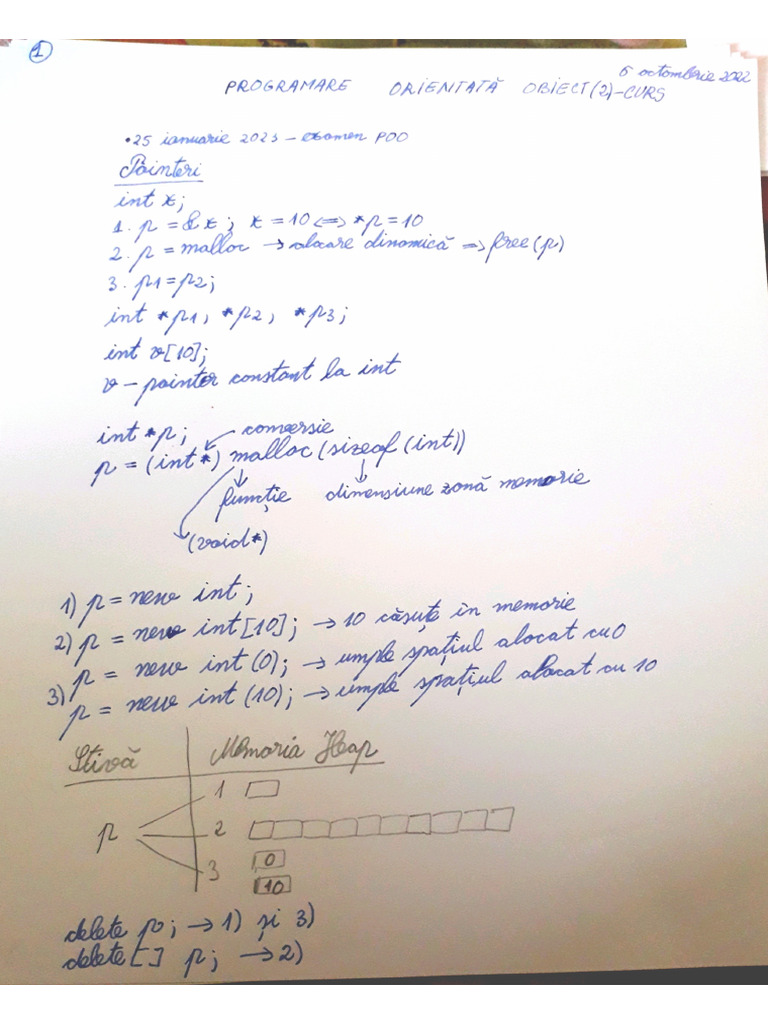 1
6 octombrie 2022
PROGRAMARE ORIENTATĂ OBIECT(2)-CURS
• 25 ianuarie 2023 – examen POO
Pointeri
int x;
1. p = &x; x = 10 <=> *p = 10
2. p = malloc → alocare dinamică => free(p)
3. p1 = p2;
int *p1, *p2, *p3;
int v[10];
v – pointer constant la int
int *p; conversie
p = (int*) malloc (sizeof (int))
funcție dimensiune zonă memorie
(void*)
1) p = new int;
2) p = new int[10]; → 10 căsuțe în memorie
3) p = new int (0); → umple spațiul alocat cu 0
p = new int (10); → umple spațiul alocat cu 10
Stivă Memoria Heap
1
p 2
3 0
10
delete p; → 1) și 3)
delete[] p; → 2)